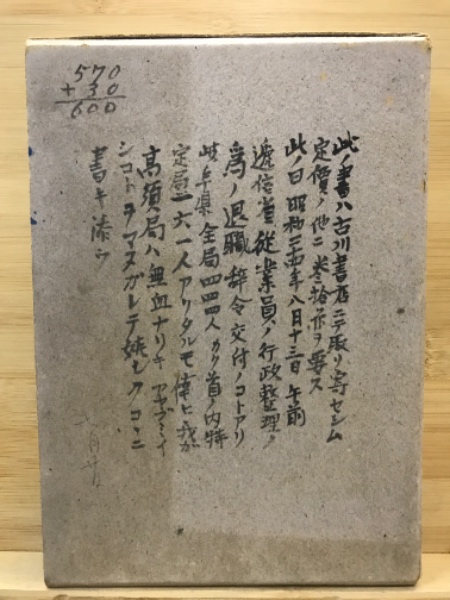 570
+ 30
600
此ノ書ハ古川書店ニテ取リ寄セシム
定價ノ他ニ参拾円ヲ要ス
此ノ日昭和二十四年八月十三日午前
逓信省従業員ノ行政整理ノ
為ノ退職辞令交付ノコトアリ
岐阜県全局四四四人カク首ノ内特
定局二六一人アリタルモ幸ヒ我ガ
高須局ハ無血ナリキ
シコトヲマヌガレテ
書キ添ウ